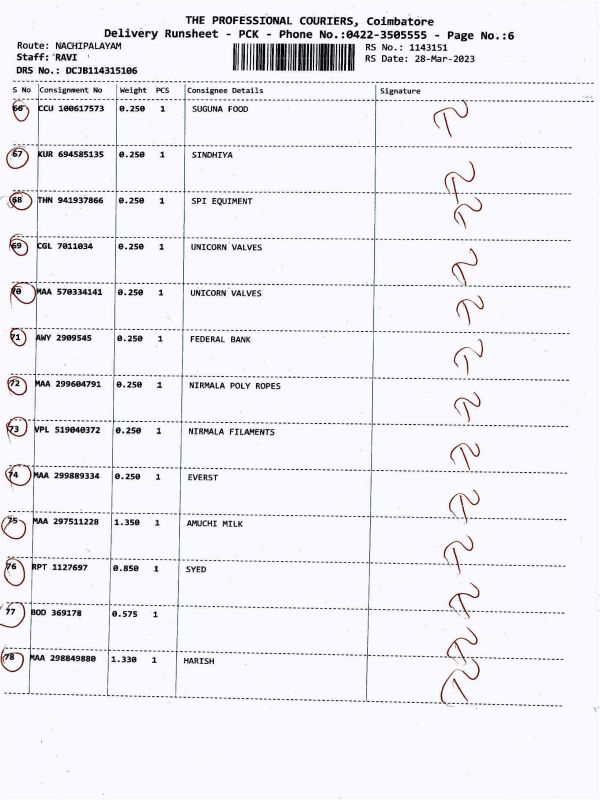 THE PROFESSIONAL COURIERS, Coimbatore
Delivery Runsheet - PCK - Phone No.:0422-3505555 - Page No.:6
Route: NACHIPALAYAM RS No.: 1143151
Staff: RAVI RS Date: 28-Mar-2023
DRS No.: DCJB114315106
S No Consignment No Weight PCS Consignee Details Signature
66 CCU 100617573 0.250 1 SUGUNA FOOD
67 KUR 694585135 0.250 1 SINDHIYA
68 THN 941937866 0.250 1 SPI EQUIMENT
69 CGL 7011034 0.250 1 UNICORN VALVES
70 MAA 570334141 0.250 1 UNICORN VALVES
71 AWY 2909545 0.250 1 FEDERAL BANK
72 MAA 299604791 0.250 1 NIRMALA POLY ROPES
73 VPL 519040372 0.250 1 NIRMALA FILAMENTS
74 MAA 299889334 0.250 1 EVERST
75 MAA 297511228 1.350 1 AMUCHI MILK
76 RPT 1127697 0.850 1 SYED
77 BOD 369178 0.575 1
78 MAA 298849880 1.330 1 HARISH